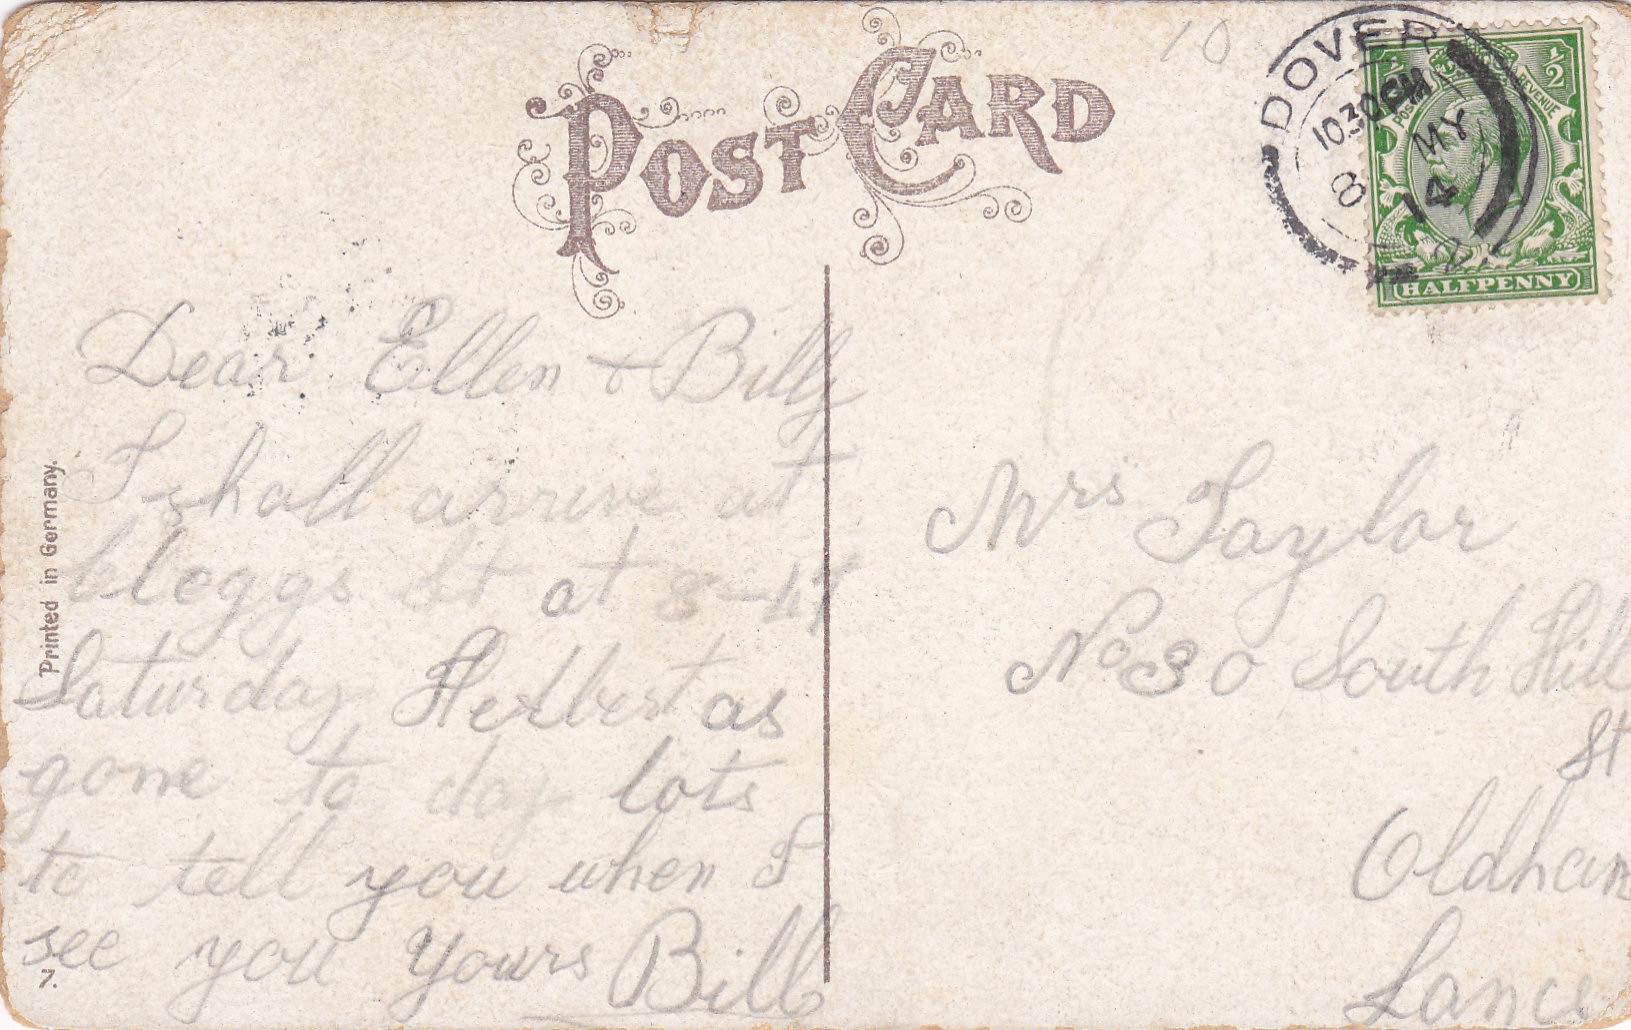 POST CARD
10
DOVER
1030PM
8 MY
14
POSTAGE REVENUE
½ ½
HALFPENNY
Printed in Germany.
Dear Ellen + Billy
I shall arrive at
Cleggs St at 8-47
Saturday Herbert as
gone to day lots
to tell you when I
see you Yours Bill
7.
Mrs Taylor
No 30 South Hill
St
Oldham
Lancs